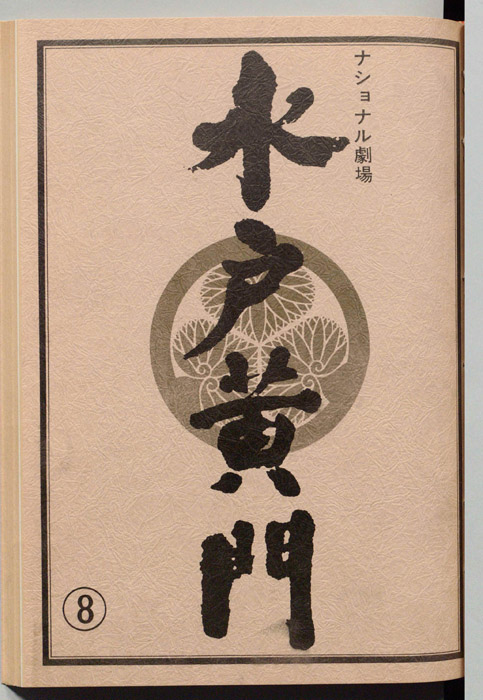 ナショナル劇場
水戸黄門
8